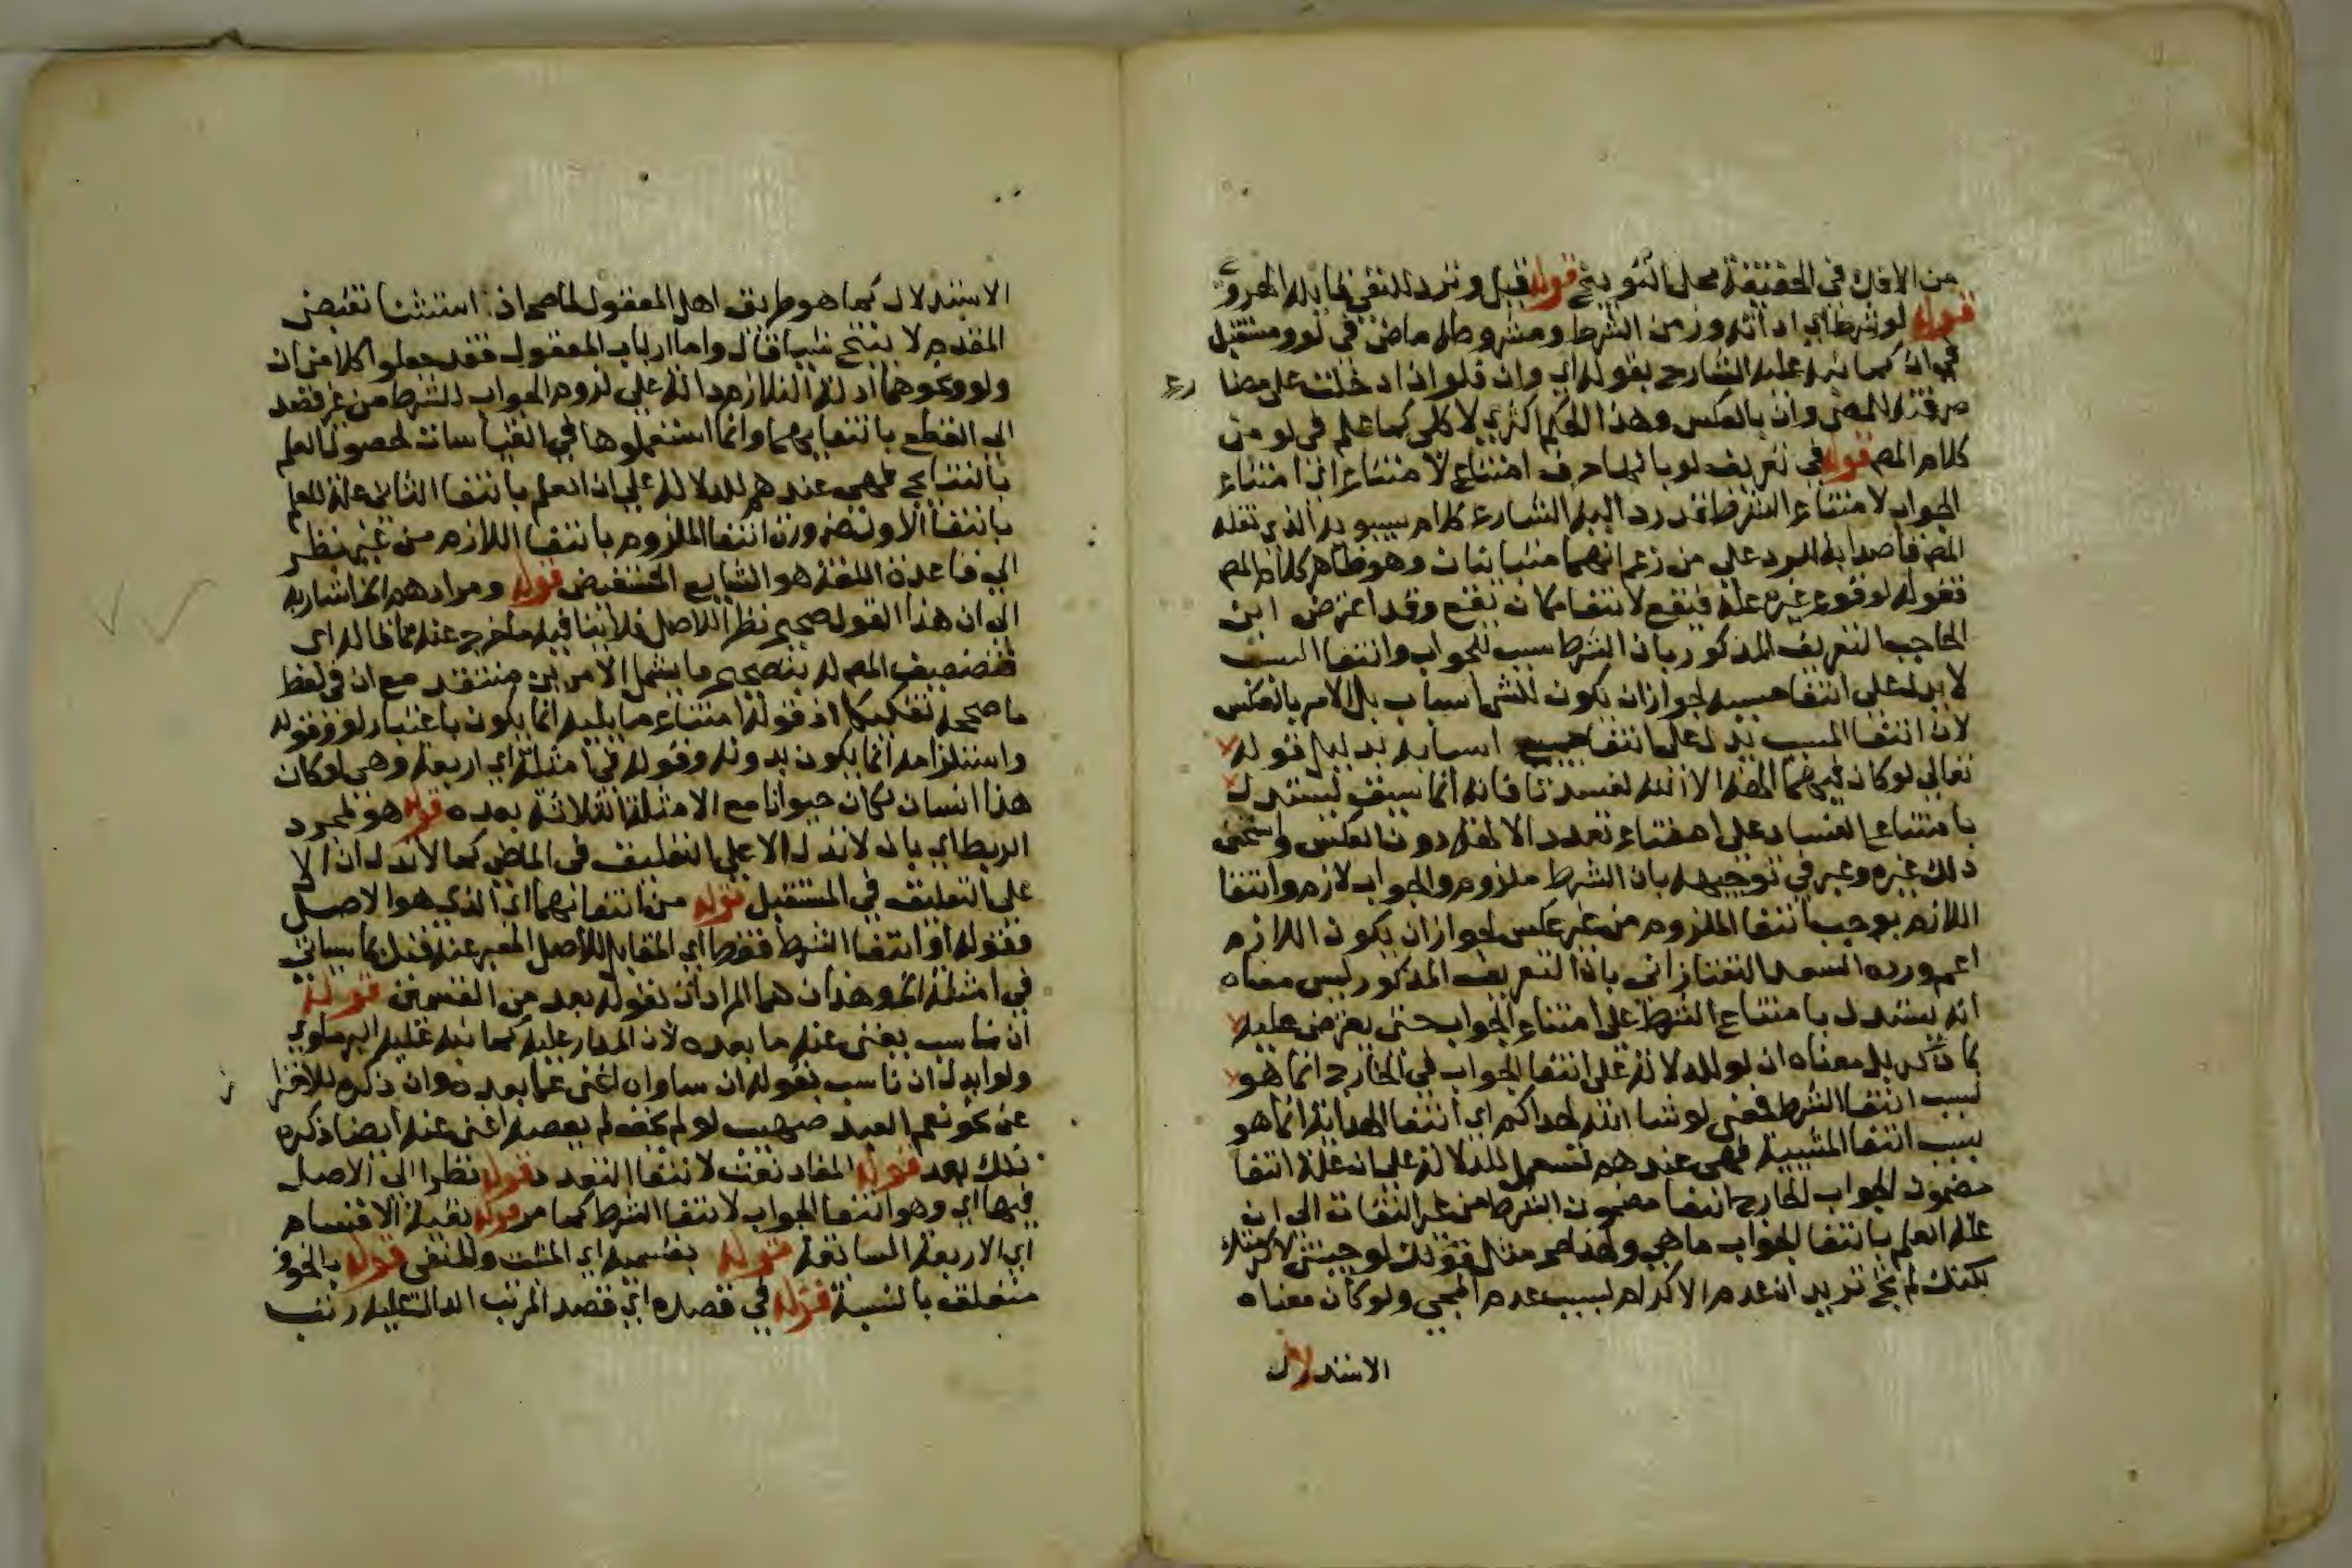 من الافك في الحقيقة محل التوبيخ قوله قيل وترد للنفي قابله الهروي
قوله لو شرط اي اداته وزمن الشرط ومشروطه ماض في لو ومستقبل
في ان كما نبه عليه الشارح بقوله اي وان قلو اذا دخلت على مضا رع
صرفته للمضي وان بالعكس وهذا الحكم اكثري لا كلي كما علم في لو من
كلام المص قوله في تعريف لو بانها حرف امتناع لامتناع اي امتناع
الجواب لامتناع الشرط قد رد اليه الشارح كلام سيبويه الذي نقله
المص قاصدا به الرد على من زعم انهما متباينان وهو ظاهر كلام المص
فقوله لوقوع غيره علة فيقع لانتفا ما كان يقع وقد اعترض ابن
الحاجب التعريف المذكور بان الشرط سبب للجواب وانتفا السبب
لا يدل على انتفا مسببه لجواز ان يكون للشي اسباب بل الامر بالعكس
لان انتفا المسبب يدل على انتفا جميع اسبابه بدليل قوله
تعالى لو كان فيهما الهة الا الله لفسدتا فانه انما سيق ليستدل
بامتناع الفساد على امتناع تعدد الالهة دون العكس واستحسن
ذلك غيره وعبر في توجيهه بان الشرط ملزوم والجواب لازم وانتفا
اللازم يوجب انتفا الملزوم من غير عكس لجواز ان يكون اللازم
اعم ورده السعد التفتازاني بان التعريف المذكور ليس معناه
انه يستدل بامتناع الشرط على امتناع الجواب حتى يعترض عليه
بما ذكر بل معناه ان لو للدلالة على انتفا الجواب في الخارج انما هو
بسبب انتفا الشرط فمعنى لو شا الله لهداكم اي انتفا الهداية انما هو
بسبب انتفا المشيية فهي عندهم تستعمل للدلالة على ان علة انتفا
مضمون الجواب الخارج انتفا مضمون الشرط من غير التفات الى ان
علة العلم بانتفا الجواب ما هي ولهذا صح مثل قولك لو جيتني لاكرمتك
لكنك لم تج تريد ان عدم الاكرام بسبب عدم المجي ولو كان معناه
الاستدلال
الاستدلال كما هو طريق اهل المعقول لما صح اذ استثنا نقيض
المقدم لا ينتج شيا قال واما ارباب المعقول فقد جعلوا كلا من ان
ولو ونحوهما اداة التلازم دالة على لزوم الجواب للشرط من غير قصد
الى القطع بانتفايهما وانما استعملوها في القياسات لحصول العلم
بالنتايج فهي عندهم للدلالة على ان العلم بانتفا الثاني علة للعلم
بانتفا الاول ضرورة انتفا الملزوم بانتفا اللازم من غير نظر
الى قاعدة اللغة هو الشايع المستفيض قوله ومرادهم الخ اشار به
الى ان هذا القول صحيح نظرا للاصل فلا ينافيه ما خرج عنه مما قاله اي
فتضعيف المص له بتصحيح ما يشمل الامرين منتقد مع ان في لفظ
ما صححه تفكيكا اذ قوله امتناع ما يليه انما يكون باعتبار لو وقوله
واستلزامه انما يكون بدونه وقوله في امثلة اي اربعة وهي لو كان
هذا انسان لكان حيوانا مع الامثلة الثلاثة بعده قوله هو لمجرد
الربط اي بان لا تدل الا على التعليق في الماضي كما لا تدل ان الا
على التعليق في المستقبل قوله من انتفائهما اي الذي هو الاصل
فقوله او انتفا الشرط فقط اي المقابل للاصل المعبر عنه فيك كما سياتي
في امثلة الخ وهذان هما المراد ان بقوله بعد من القسمين قوله
ان ناسب يغني عنه ما بعده لان المدار عليه كما نبه عليه البرماوي
ولو ابدل ان ناسب بقوله ان ساواه اغنى عما بعده وان ذكره للاحتراز
عن نحو نعم العبد صهيب لو لم يخف لم يعصه اغنى عنه ايضا ذكره
ذلك بعد قوله المفاد نعت لانتفا التعدد قوله نظرا الى الاصل
فيها اي وهو انتفا الجواب لانتفا الشرط كما مر قوله بقية الاقسام
اي الاربعة السابقة قوله بقسميه اي المثبت والمنفي قوله بالخوف
متعلق بالنسبة قوله في قصده اي قصد المرتب الدال عليه رتب